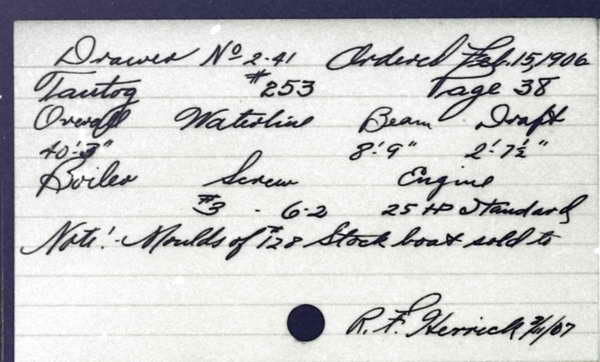 Drawer No 2-41 Ordered Feb. 15, 1906
Tautog #253 Page 38
Overall Waterline Beam Draft
40'-3" 8'-9" 2'-7½"
Boiler Screw Engine
#3 - 6-2 25 HP Standard
Note:- Moulds of #128 Stock boat sold to
R. F. Herrick